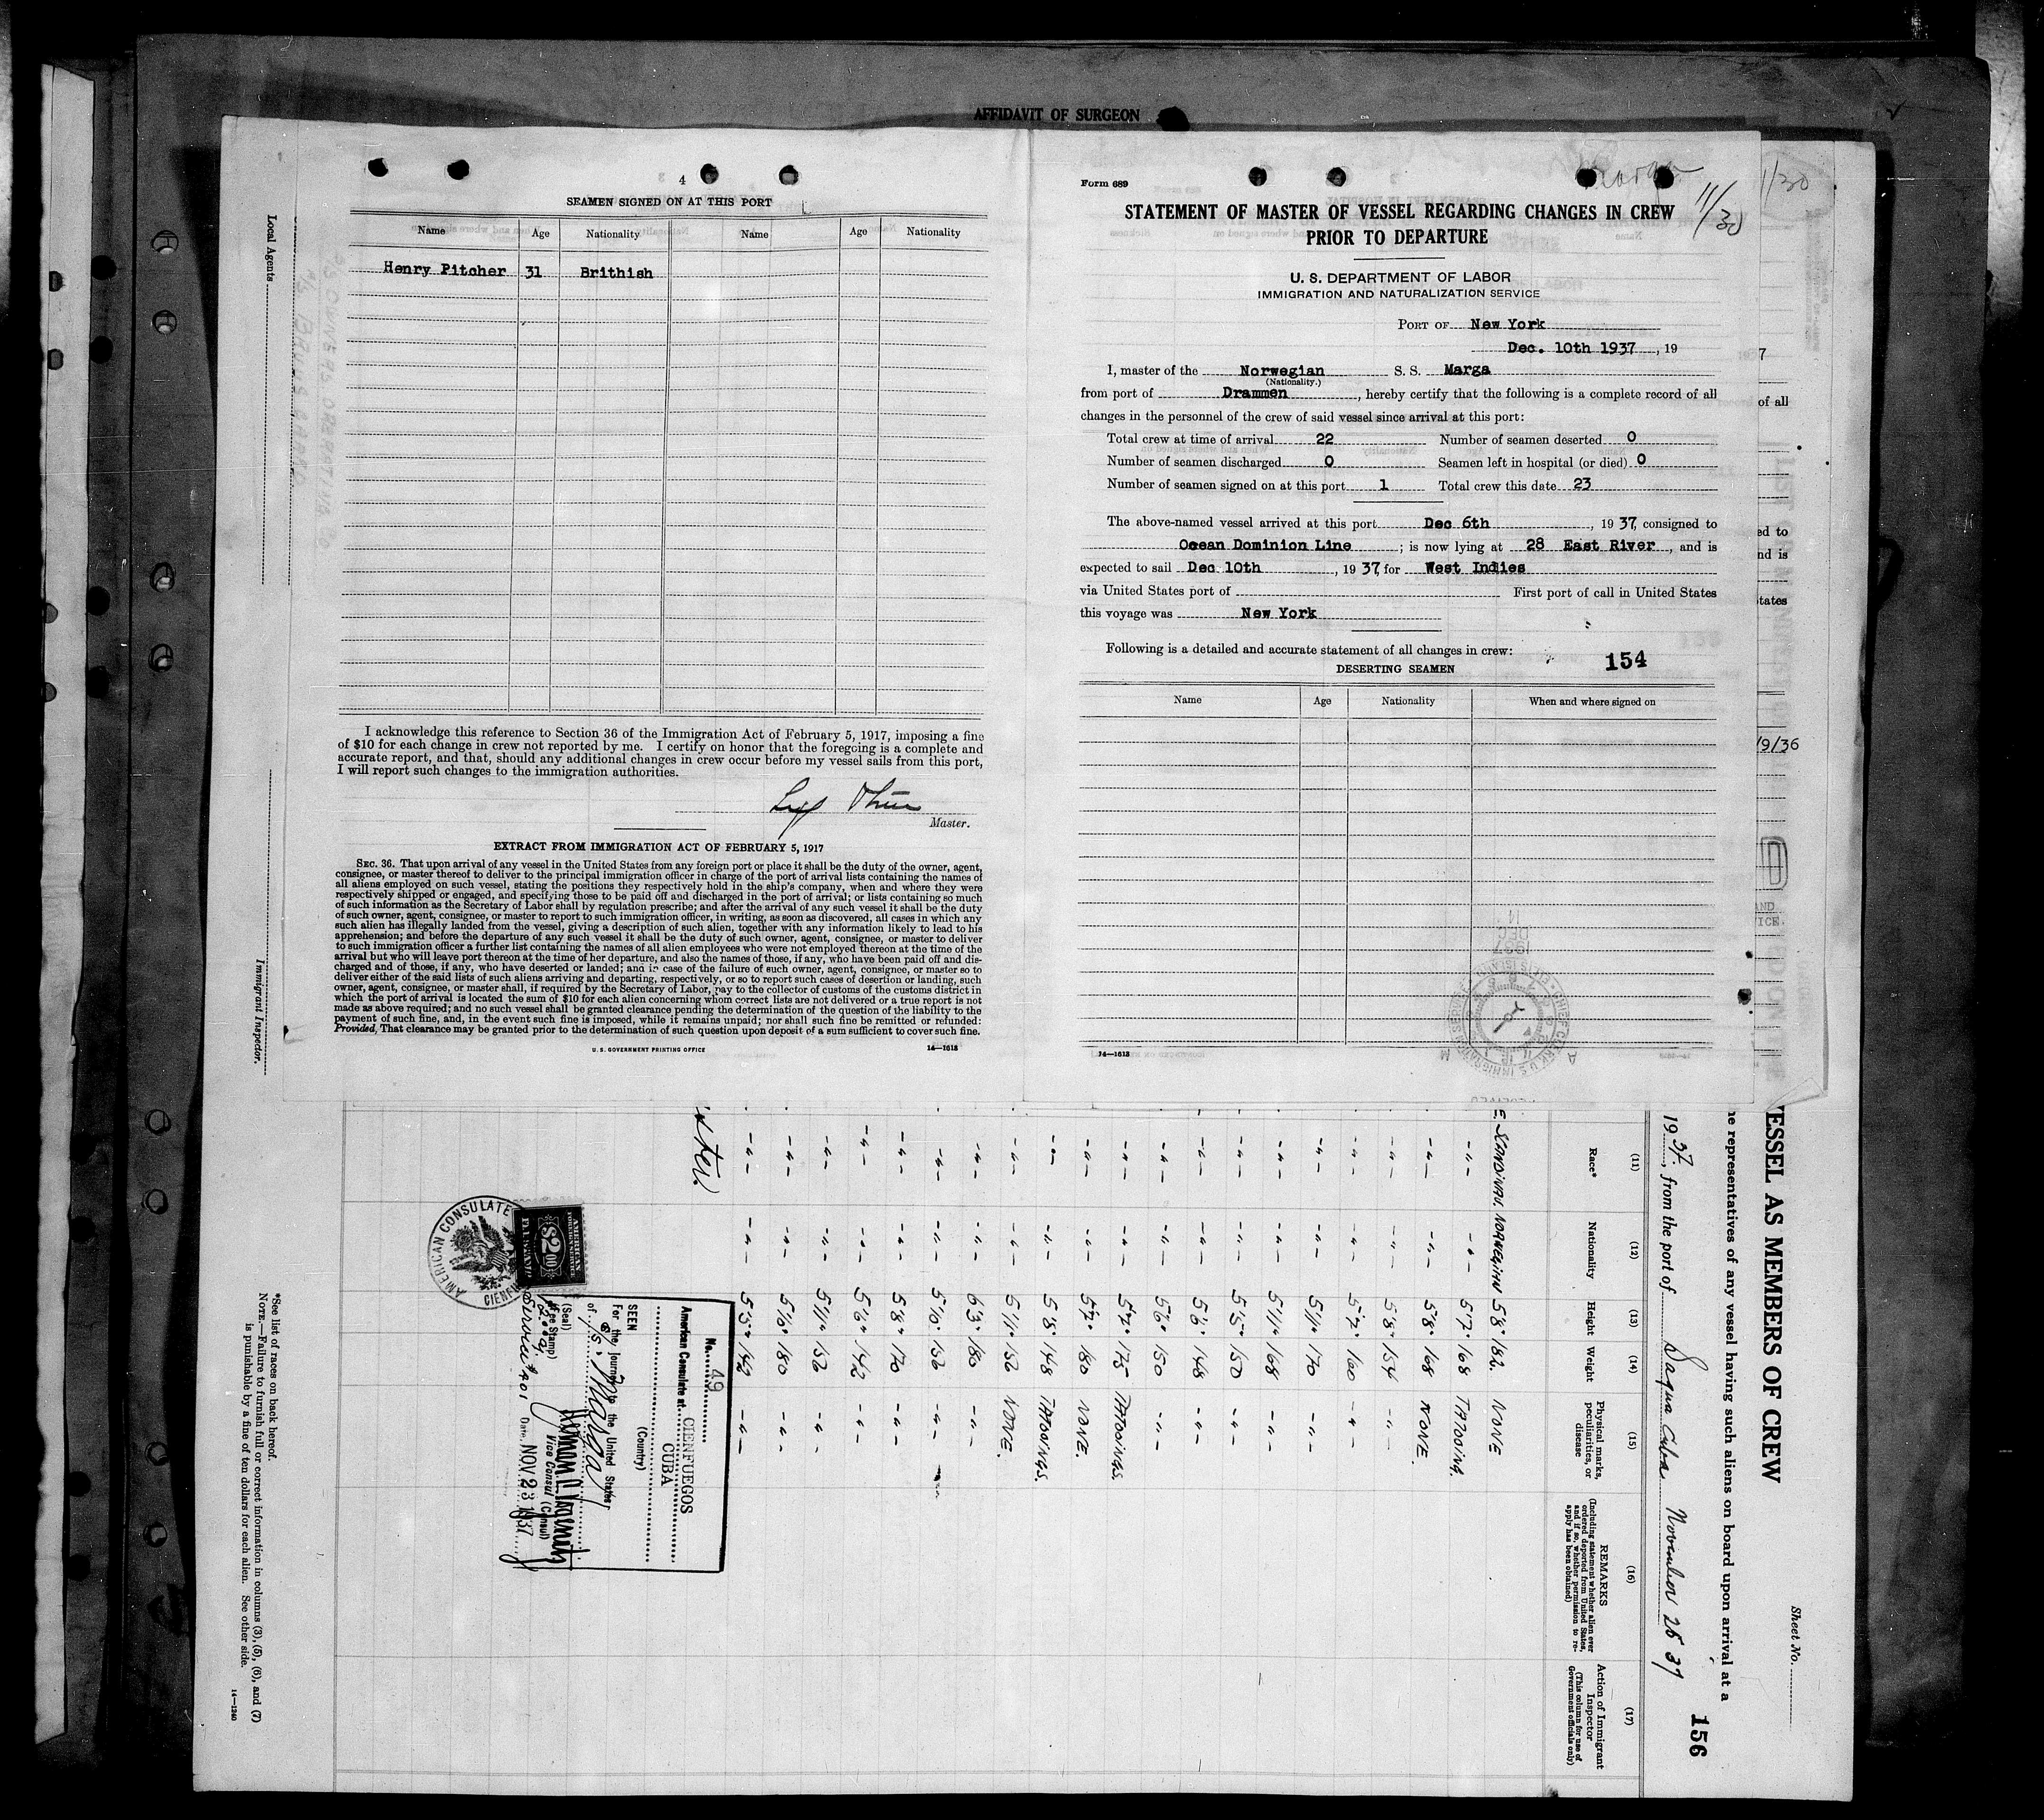 AFFIDAVIT OF SURGEON
4
SEAMEN SIGNED ON AT THIS PORT
Name Age Nationality Name Age Nationality
Henry Pitcher 31 Brithish
I acknowledge this reference to Section 36 of the Immigration Act of February 5, 1917, imposing a fine
of $10 for each change in crew not reported by me. I certify on honor that the foregoing is a complete and
accurate report, and that, should any additional changes in crew occur before my vessel sails from this port,
I will report such changes to the immigration authorities.
Master.
EXTRACT FROM IMMIGRATION ACT OF FEBRUARY 5, 1917
SEC. 36. That upon arrival of any vessel in the United States from any foreign port or place it shall be the duty of the owner, agent,
consignee, or master thereof to deliver to the principal immigration officer in charge of the port of arrival lists containing the names of
all aliens employed on such vessel, stating the positions they respectively hold in the ship's company, when and where they were
respectively shipped or engaged, and specifying those to be paid off and discharged in the port of arrival; or lists containing so much
of such information as the Secretary of Labor shall by regulation prescribe; and after the arrival of any such vessel it shall be the duty
of such owner, agent, consignee, or master to report to such immigration officer, in writing, as soon as discovered, all cases in which any
such alien has illegally landed from the vessel, giving a description of such alien, together with any information likely to lead to his
apprehension; and before the departure of any such vessel it shall be the duty of such owner, agent, consignee, or master to deliver
to such immigration officer a further list containing the names of all alien employees who were not employed thereon at the time of the
arrival but who will leave port thereon at the time of her departure, and also the names of those, if any, who have been paid off and dis-
charged and of those, if any, who have deserted or landed; and in case of the failure of such owner, agent, consignee, or master so to
deliver either of the said lists of such aliens arriving and departing, respectively, or so to report such cases of desertion or landing, such
owner, agent, consignee, or master shall, if required by the Secretary of Labor, pay to the collector of customs of the customs district in
which the port of arrival is located the sum of $10 for each alien concerning whom correct lists are not delivered or a true report is not
made as above required; and no such vessel shall be granted clearance pending the determination of the question of the liability to the
payment of such fine, and, in the event such fine is imposed, while it remains unpaid; nor shall such fine be remitted or refunded:
Provided, That clearance may be granted prior to the determination of such question upon deposit of a sum sufficient to cover such fine.
U. S. GOVERNMENT PRINTING OFFICE 14—1618
Form 689
11/30
STATEMENT OF MASTER OF VESSEL REGARDING CHANGES IN CREW
PRIOR TO DEPARTURE
U. S. DEPARTMENT OF LABOR
IMMIGRATION AND NATURALIZATION SERVICE
PORT OF New York
Dec. 10th 1937, 19
I, master of the Norwegian S. S. Marga
(Nationality.)
from port of Drammen, hereby certify that the following is a complete record of all
changes in the personnel of the crew of said vessel since arrival at this port:
Total crew at time of arrival 22 Number of seamen deserted 0
Number of seamen discharged 0 Seamen left in hospital (or died) 0
Number of seamen signed on at this port 1 Total crew this date 23
The above-named vessel arrived at this port Dec 6th, 1937, consigned to
Ocean Dominion Line; is now lying at 28 East River, and is
expected to sail Dec 10th, 1937, for West Indies
via United States port of First port of call in United States
this voyage was New York
Following is a detailed and accurate statement of all changes in crew:
154
DESERTING SEAMEN
Name Age Nationality When and where signed on
14—1618
1/30
7
of all
ed to
nd is
tates
/9/36
Local Agents
Immigrant Inspector.
Sheet No.
VESSEL AS MEMBERS OF CREW
he representatives of any vessel having such aliens on board upon arrival at a
1937, from the port of Sagua Cuba November 26 37
156
(11) (12) (13) (14) (15) (16) (17)
Race* Nationality Height Weight Physical marks, peculiarities, or disease REMARKS (Including statement whether alien ever ordered deported from United States, and if so, whether permission to re-apply has been obtained) Action of Immigrant Inspector (This column for use of Government officials only)
E SCANDINAV. NORWEGIAN 5'8" 182. NONE
-"- -"- 5'7" 168 TATOOING.
-"- -"- 5'8" 168 NONE.
-"- -"- 5'8" 154 -"-
-"- -"- 5'7" 160 -"-
-"- -"- 5'11" 170 -"-
-"- -"- 5'11" 168 -"-
-"- -"- 5'5" 150 -"-
-"- -"- 5'6" 148 -"-
-"- -"- 5'6" 150 -"-
-"- -"- 5'7" 175 TATOOINGS.
-"- -"- 5'7" 180 NONE.
-"- -"- 5'8" 148 TATOOINGS.
-"- -"- 5'11" 156 NONE.
-"- -"- 6'3" 180 -"-
-"- -"- 5'10" 156 -"-
-"- -"- 5'8" 170 -"-
-"- -"- 5'6" 142 -"-
-"- -"- 5'11" 156 -"-
-"- -"- 5'10" 180 -"-
-"- -"- 5'5" 142 -"-
No. 49
American Consulate at CIENFUEGOS
CUBA
(Country)
SEEN
For the journey to the United States
of S/S. "Marga"
(Seal)
(Fee Stamp)
Vice Consul (Consul)
Service # 401 Date NOV 23 1937
AMERICAN CONSULATE
AMERICAN FOREIGN SERVICE $2.00
*See list of races on back hereof.
NOTE.—Failure to furnish full or correct information in columns (3), (5), (6), and (7)
is punishable by a fine of ten dollars for each alien. See other side.
14—1240